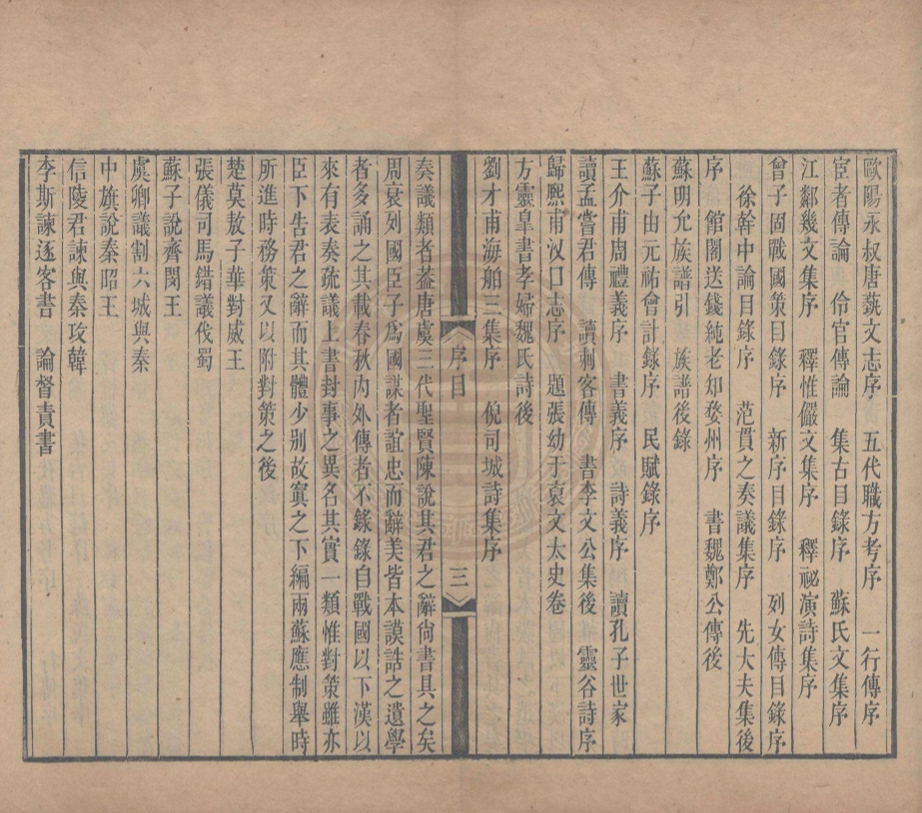 歐陽永叔唐蓺文志序　五代職方考序　一行傳序
宦者傳論　伶官傳論　集古目錄序　蘇氏文集序
江鄰幾文集序　釋惟儼文集序　釋祕演詩集序
曾子固戰國策目錄序　新序目錄序　列女傳目錄序
徐幹中論目錄序　范貫之奏議集序　先大夫集後
序　館閣送錢純老知婺州序　書魏鄭公傳後
蘇明允族譜引　族譜後錄
蘇子由元祐會計錄序　民賦錄序
王介甫周禮義序　書義序　詩義序　讀孔子世家
讀孟嘗君傳　讀刺客傳　書李文公集後　靈谷詩序
歸熙甫汊口志序　題張幼于裒文太史卷
方靈皋書孝婦魏氏詩後
劉才甫海舶三集序　倪司城詩集序
序目　三
奏議類者葢唐虞三代聖賢陳說其君之辭尙書具之矣
周衰列國臣子爲國謀者誼忠而辭美皆本謨誥之遺學
者多誦之其載春秋內外傳者不錄錄自戰國以下漢以
來有表奏疏議上書封事之異名其實一類惟對策雖亦
臣下告君之辭而其體少別故寘之下編兩蘇應制舉時
所進時務策又以附對策之後
楚莫敖子華對威王
張儀司馬錯議伐蜀
蘇子說齊閔王
虞卿議割六城與秦
中旗說秦昭王
信陵君諫與秦攻韓
李斯諫逐客書　論督責書